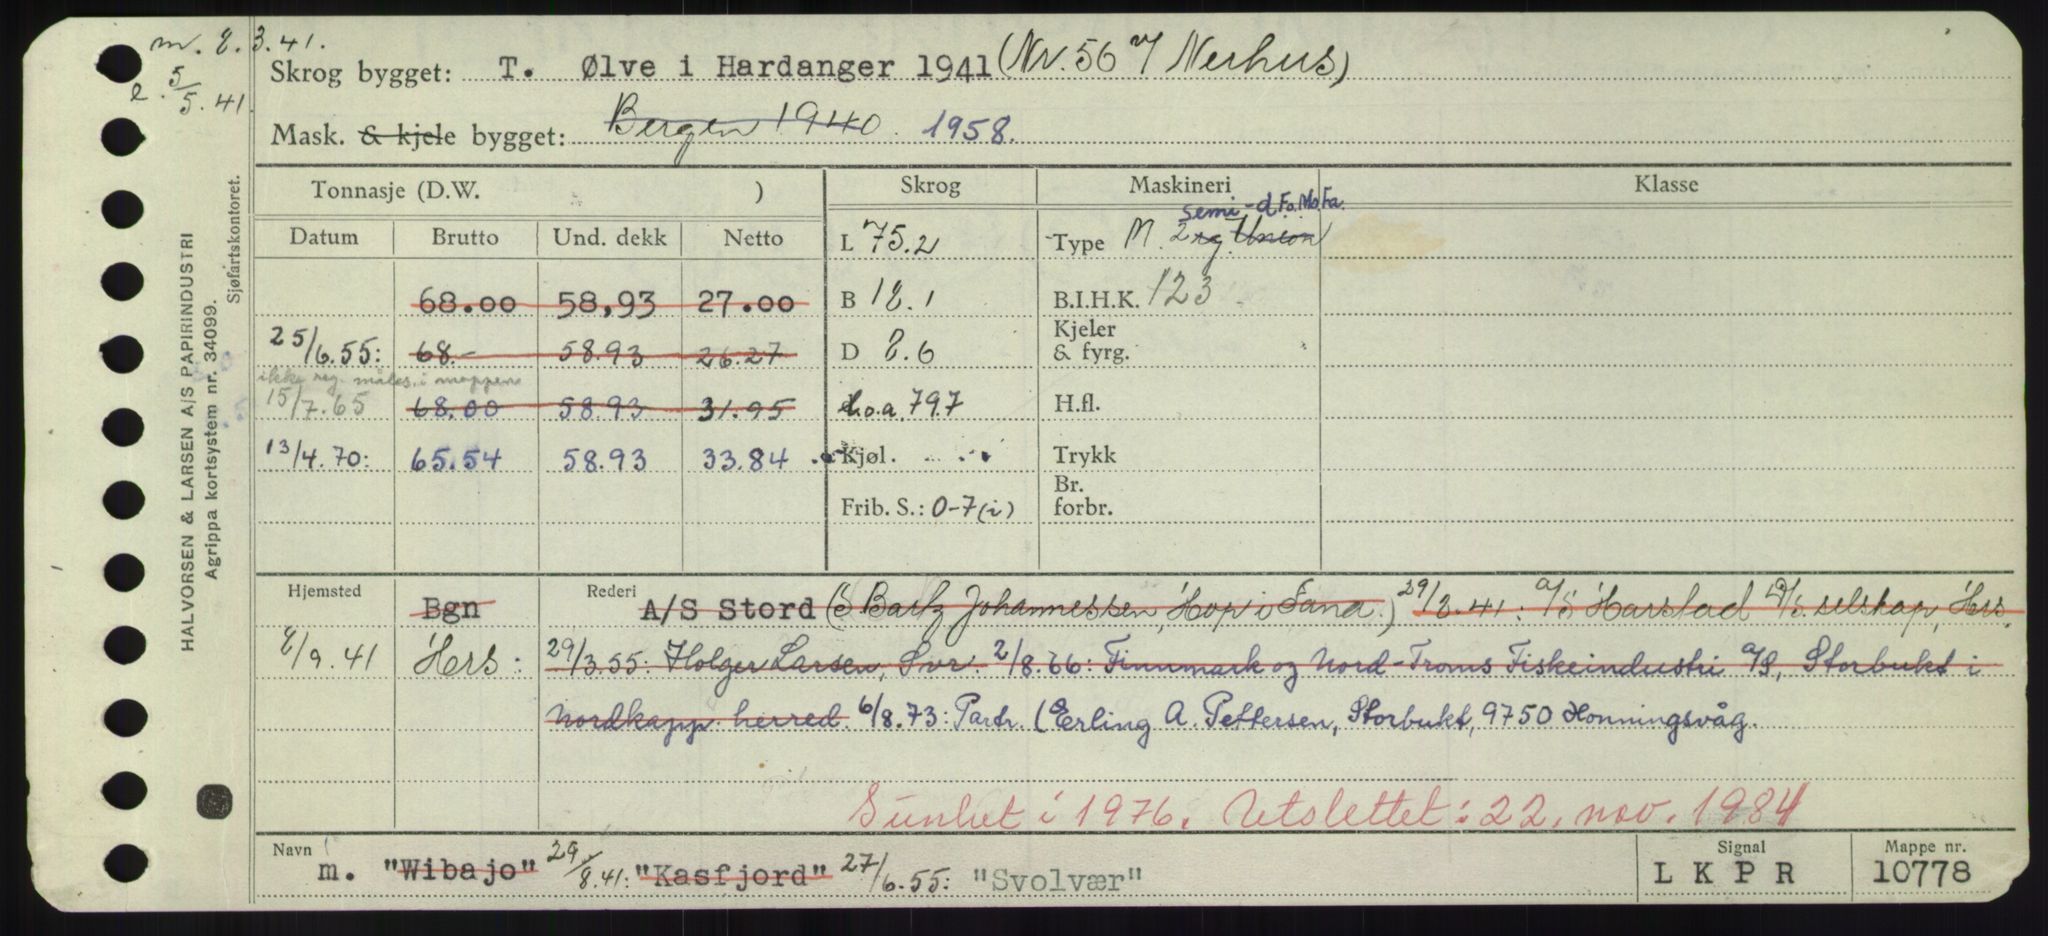 m. 8.3.41.
e. 5/5.41.
Skrog bygget: T. Ølve i Hardanger 1941 (Nr. 56 v/ Nerhus)
Mask. & kjele bygget: Bergen 1940. 1958.
Tonnasje (D.W. ) Skrog Maskineri Klasse
semi-d Fo.Mo.Fa.
Datum Brutto Und. dekk Netto L 75.2 Type M. 2 sg. Union
68.00 58,93 27.00 B 18.1 B.I.H.K. 123
25/6.55: 68.- 58.93 26.27 D 8.6 Kjeler & fyrg.
ikke reg. måles. i mappen
15/7.65 68.00 58.93 31.95 L.o.a. 79.7 H.fl.
13/4.70: 65.54 58.93 33.84 Kjøl. Trykk
Frib. S.: 0-7 (i) Br. forbr.
Hjemsted Bgn Rederi A/S Stord (S Bartz Johannessen, Hop i Fana.) 29/8.41: A/S Harstad D/S. selskap, Hrs.
8/9.41 Hrs: 29/3.55: Holger Larsen, Svr. 2/8.66: Finnmark og Nord-Troms Fiskeindustri A/S, Storbukt i
Nordkapp herred. 6/8.73: Partr. (Erling A. Pettersen, Storbukt, 9750 Honningsvåg.
Sunket i 1976. Utslettet: 22. nov. 1984
Navn m. "Wibajo" 29/8.41: "Kasfjord" 27/6.55: "Svolvær" Signal LKPR Mappe nr. 10778
HALVORSEN & LARSEN A/S PAPIRINDUSTRI
Agrippa kortsystem nr. 34099.
Sjøfartskontoret.